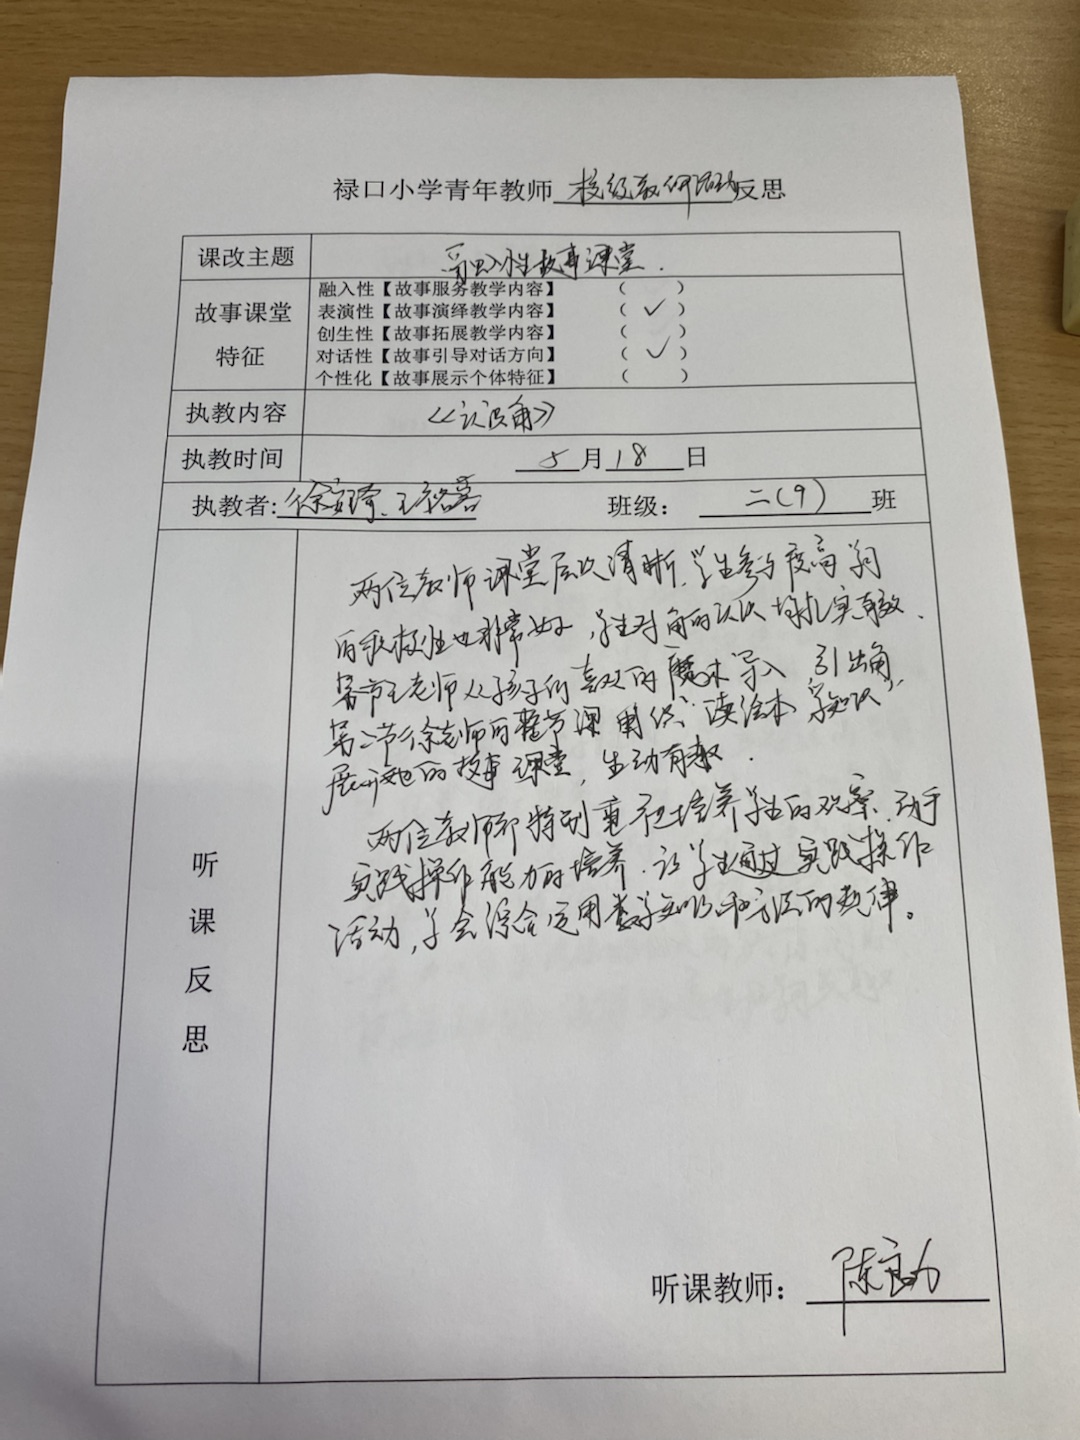 禄口小学青年教师校级教研活动反思
课改主题 融入性故事课堂.
故事课堂特征
融入性【故事服务教学内容】 (  )
表演性【故事演绎教学内容】 ( ✓ )
创生性【故事拓展教学内容】 (  )
对话性【故事引导对话方向】 ( ✓ )
个性化【故事展示个体特征】 (  )
执教内容 《认识角》
执教时间 5月18日
执教者: 徐 、王 班级: 二(9)班
听课反思
两位教师课堂层次清晰,学生参与度高,
的积极性也非常好,学生对角的认识扎实有效.
第一节王老师从孩子们喜欢的魔术导入 引出角
第二节徐老师的整节课用 “读绘本 学知识”
展开她的故事课堂,生动有趣.
两位教师都特别重视培养学生的观察、动手
实践操作能力的培养.让学生通过实践操作
活动,学会综合运用数学知识和方法的规律。
听课教师: 陈